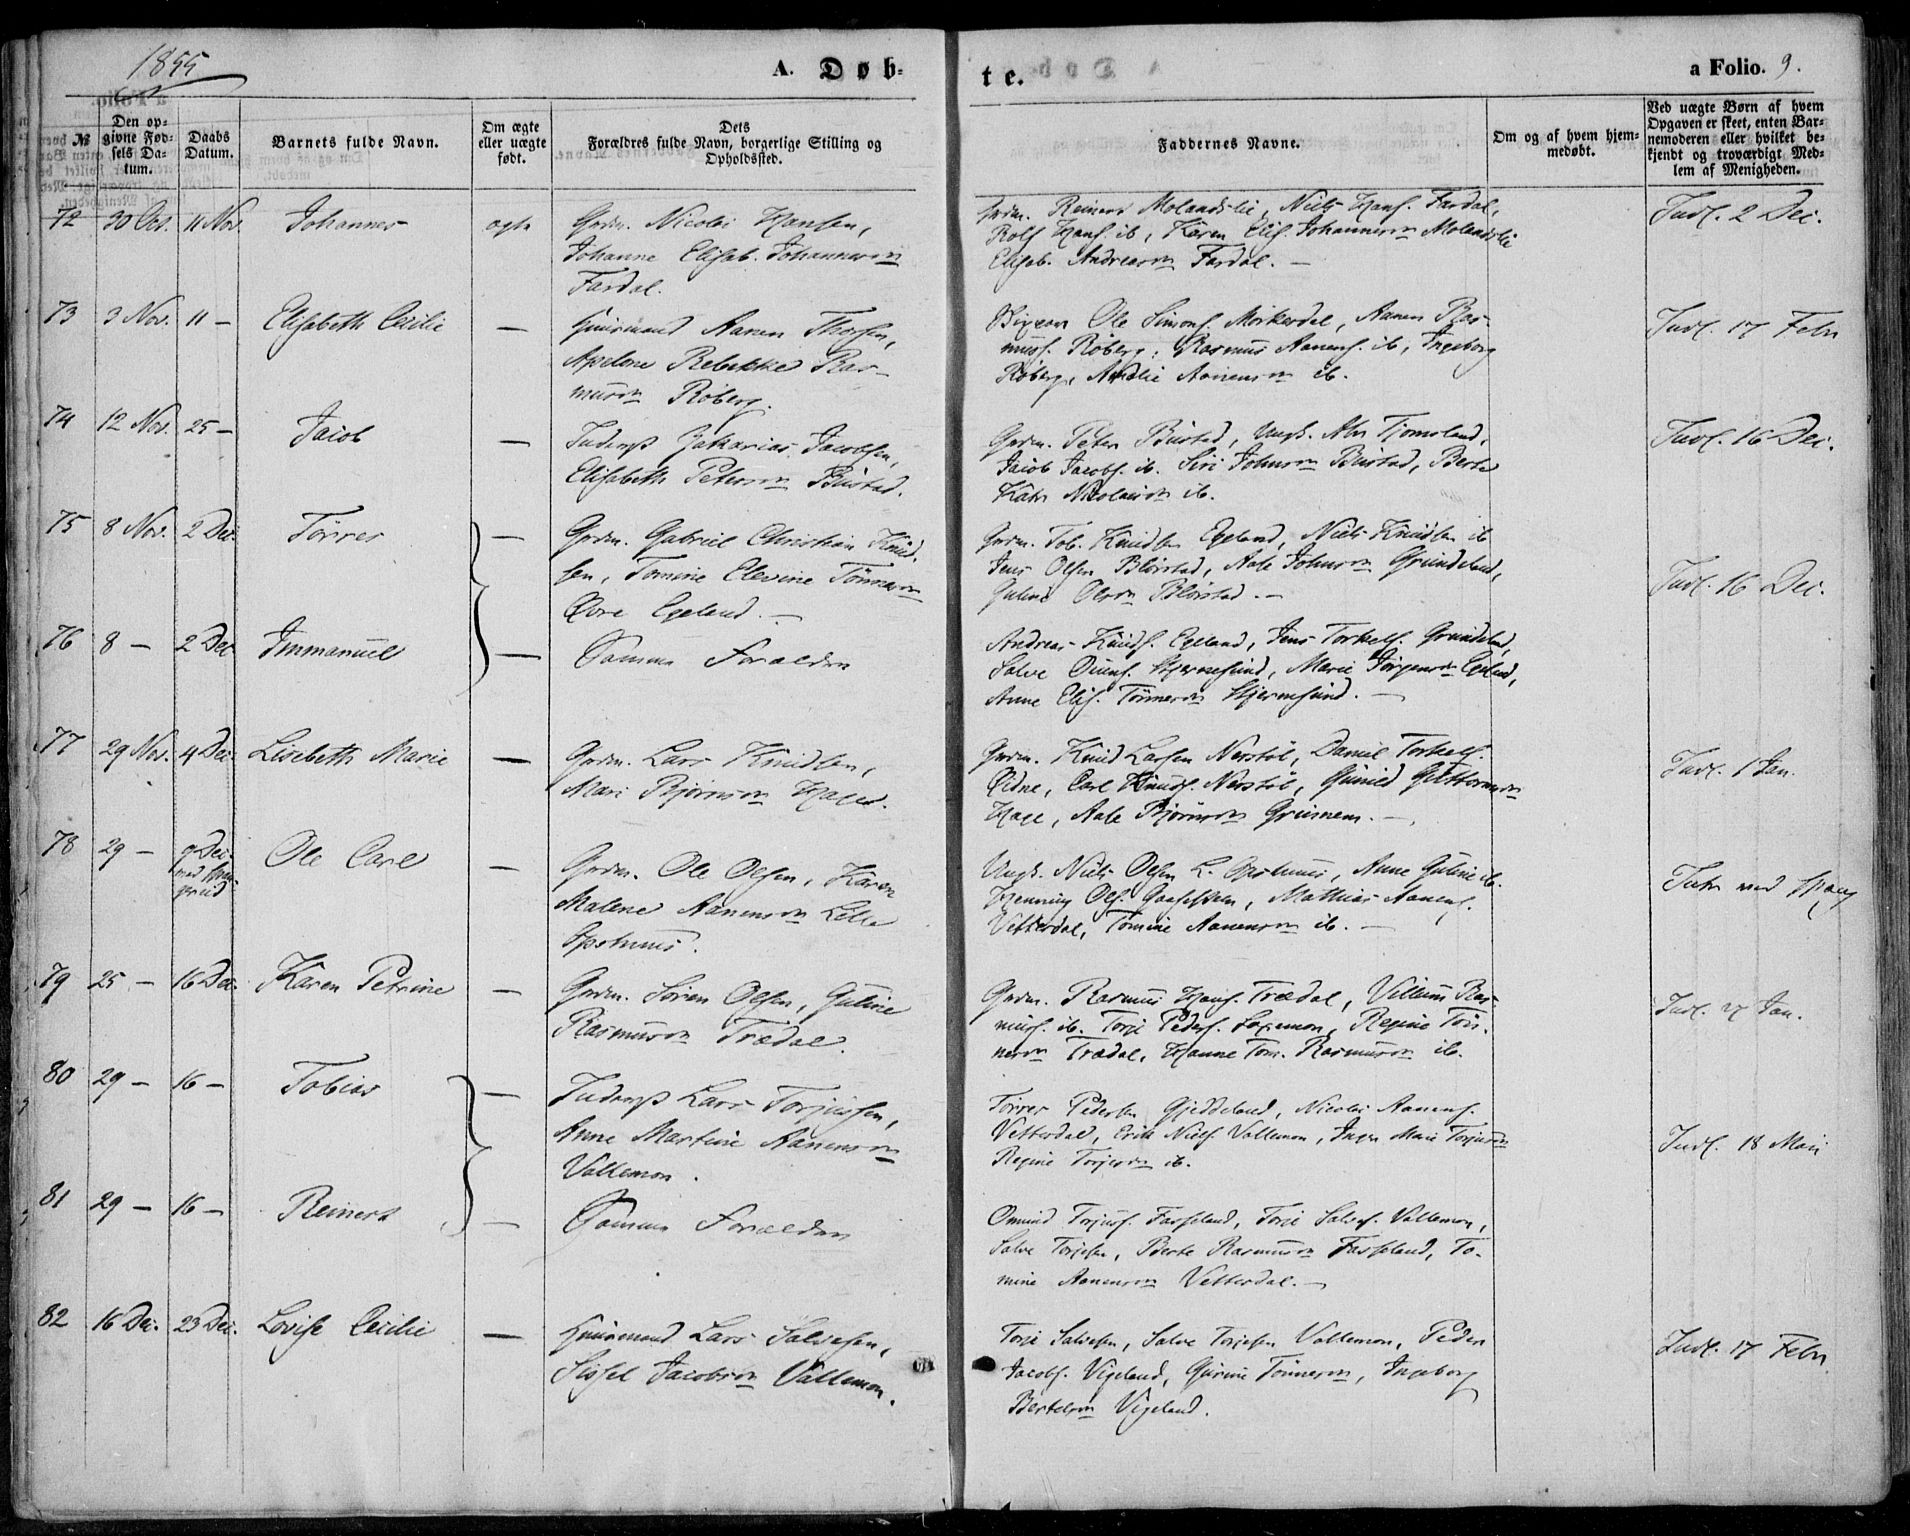 1855
A. Døb-
te.
a Folio. 9.
№
Den op-
givne Fød-
sels Da-
tum.
Daabs
Datum.
Barnets fulde Navn.
Om ægte
eller uægte
født.
Dets
Forældres fulde Navn, borgerlige Stilling og
Opholdssted.
Faddernes Navne.
Om og af hvem hjem-
medøbt.
Ved uægte Børn af hvem
Opgaven er skeet, enten Bar-
nemoderen eller hvilket be-
kjendt og troværdigt Med-
lem af Menigheden.
72 30 Oct. 11 Nov Johannes ægte Grdm. Nicolai Hansen,
Johanne Elisab. Johannesdn
Fardal.
Grdm. Reinert Molandslie, Niels Hans. Fardal,
Rolf Hans. ib, Karen Elis. Johannesdn Molandslie
Elisab. Andreasdn Fardal. —
Indl. 2 Dec.
73 3 Nov. 11 — Elisabeth Cecilie — Huusmand Aanen Thorsen,
Apelone Rebekke Ras-
musdn Röberg.
Ole Simons. Mörkerdal, Aanen Ras-
muss. Röberg, Rasmus Aanens. ib, Ingeborg
Röberg, Amalie Aanensdn ib.
Indl. 17 Febr
74 12 Nov. 25 — Jacob — Inderst Zakarias Jacobsen,
Elisabeth Petersdn Bustad.
Grdm. Peter Bustad, Ungk. Abr Tjomsland,
Jacob Jacobs. ib. Siri Johnsdn Bustad, Berte
Katr Nicolaisdn ib.
Indl. 16 Dec.
75 8 Nov. 2 Dec Törres — Grdm. Gabriel Christian Knud-
sen, Tomine Elevine Tönnesdn
Øvre Egeland. —
Grdm. Tob. Knudsen Egeland, Niels Knudsen ib
Jens Olsen Blörstad, Aale Johnsdn Grundeland,
Guline Olsdn Blörstad. —
Indl. 16 Dec.
76 8 — 2 Dec Immanuel — Samme Forældre
Andreas Knuds. Egeland, Jens Torkels. Grundeland,
Salve Hjernesund, Marie Jörgensdn Egeland,
Anne Elis. Tönnesdn Hjernesund. —
77 29 Nov. 4 Dec. Lisebeth Marie — Grdm. Lars Knudsen,
Mari Bjørnsdn Hage.
Grdm. Knud Larsen Nerstöl, Daniel Torkels.
Øidne, Carl Knuds. Nerstöl, Gunild Guttormsdn
Hage, Aale Bjørnsdn Grumens. —
Indl. 1 Jan.
78 29 — 9 Dec.
med Span-
gereid
Ole Carl — Grdm. Ole Olsen, Karen
Malene Aanensdn Lille
Opstuus.
Ungk. Niels Olsen L. Opstuus, Anne Guline ib.
Henning Ols. Mathias Aanens.
Vetterdal, Tomine Aanensdn ib. —
Intr ved Spang
79 25 — 16 Dec. Karen Petrine — Grdm. Sören Olsen, Guline
Rasmusdn Trædal.
Grdm. Rasmus Hans. Trædal, Villum Ras-
muss. ib. Torje Peders. Regine Tön-
nesdn Trædal, Hanne Tom. Rasmusdn ib.
Indl. 27 Jan.
80 29 — 16 — Tobias — Inderst Lars Torjussen,
Anne Martine Aanensdn
Vallemon.
Törres Pedersen Gjeddeland, Nicolai Aanens.
Vetterdal, Erik Niels. Vallemon, Inger Marie Torjusdn
Regine Torjesdn ib.
Indl. 18 Mai
81 29 — 16 — Reinert — Samme Forældre
Omund Torjuss. Fasseland, Torje Salves. Vallemon,
Salve Torjesen, Berte Rasmusdn Fasseland, To-
mine Aanensdn Vetterdal. —
82 16 Dec. 23 Dec. Lovise Cecilie — Huusmand Lars Salvesen,
Sissel Jacobsdn Vallemon.
Torje Salvesen, Salve Torjesen Vallemon, Peder
Jacobs. Vigeland, Gurine Tönnesdn, Ingeborg
Bertelsdn Vigeland.
Indl. 17 Febr